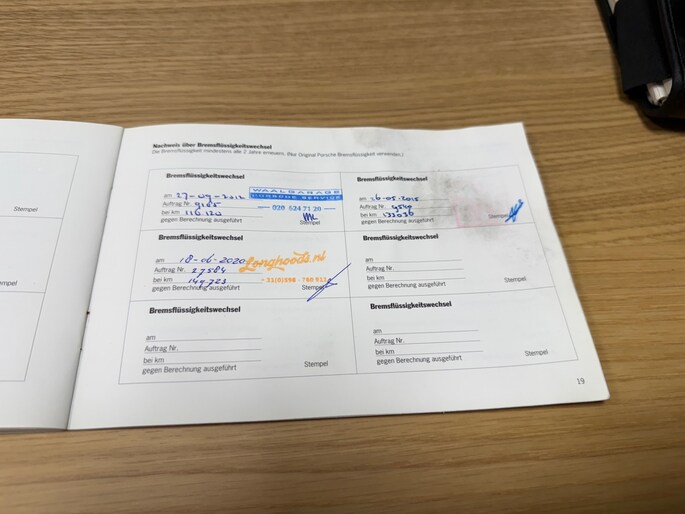 Nachweis über Bremsflüssigkeitswechsel
Die Bremsflüssigkeit mindestens alle 2 Jahre erneuern. (Nur Original Porsche Bremsflüssigkeit verwenden.)
Bremsflüssigkeitswechsel
am 27-09-2012
Auftrag Nr. 9165
bei km 116 120
gegen Berechnung ausgeführt
WAALGARAGE
PORSCHE SERVICE
— 030 524 71 20 —
Stempel
Bremsflüssigkeitswechsel
am 26-05-2015
Auftrag Nr. 9540
bei km 133036
gegen Berechnung ausgeführt
Stempel
Bremsflüssigkeitswechsel
am 18-06-2020
Auftrag Nr. 27584
bei km 149.723
gegen Berechnung ausgeführt
Longhoods.nl
Stempel
Bremsflüssigkeitswechsel
am
Auftrag Nr.
bei km
gegen Berechnung ausgeführt
Stempel
Bremsflüssigkeitswechsel
am
Auftrag Nr.
bei km
gegen Berechnung ausgeführt
Stempel
Bremsflüssigkeitswechsel
am
Auftrag Nr.
bei km
gegen Berechnung ausgeführt
Stempel
19